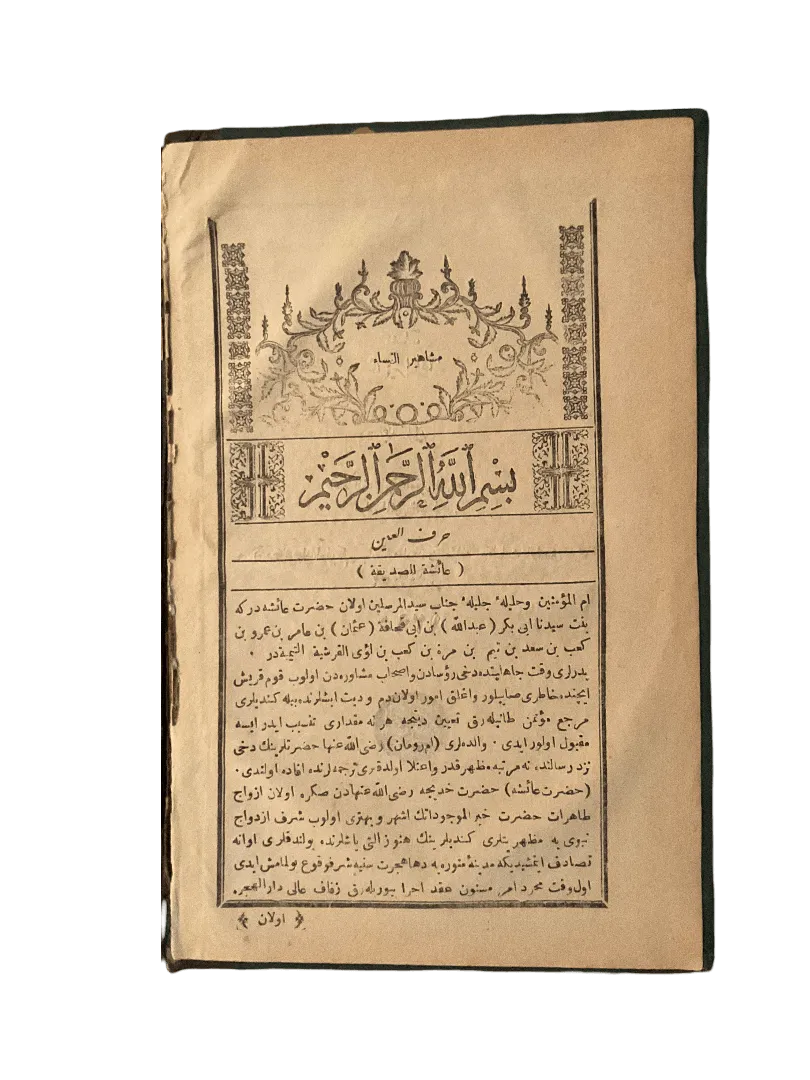 مشاهير النساء
بِسْمِ اللَّهِ الرَّحْمٰنِ الرَّحِيْمِ
حرف العين
( عائشة الصديقة )
ام المؤمنين وحليلهٔ جليلهٔ جناب سيدالمرسلين اولان حضرت عائشه دركه
بنت سيدنا ابى بكر ( عبدالله ) بن ابى قحافة ( عثمان ) بن عامر بن عمرو بن
كعب بن سعد بن تيم بن مرة بن كعب بن لؤى القرشية التيمية در ٠
پدرلرى وقت جاهليتده دخى رؤسادن واصحاب مشاوره دن اولوب قوم قريش
ايچنده خاطرى صاييلور واغلق امور اولان دم و ديت ايشلرنده بيله كنديلرى
مرجع مؤتمن طانيله رق تعيين دينجه هر نه مقدارى تنسيب ايدر ايسه
مقبول اولور ايدى ٠ والده لرى (ام رومان) رضى الله عنها حضرتلرينك دخى
نزد رسالتده نه مرتبه مظهر قدر واعتلا اولدقلرى ترجمه لرنده افاده اولندى ٠
(حضرت عائشه) حضرت خديجه رضى الله عنهادن صكره اولان ازواج
طاهرات حضرت خير الموجوداتك اشهر و بهترى اولوب شرف ازدواج
نبوى يه مظهريتلرى كنديلرينك هنوز التى ياشلرنده بولندقلرى اوانه
تصادف ايتمشيدىكه مدينۀ منوره يه دها هجرت سنيه شرفوقوع بولمامش ايدى
اول وقت مجرد امر مسنون عقد اجرا بيوريله رق زفاف عالى دار الهجر.
﴿ اولان ﴾